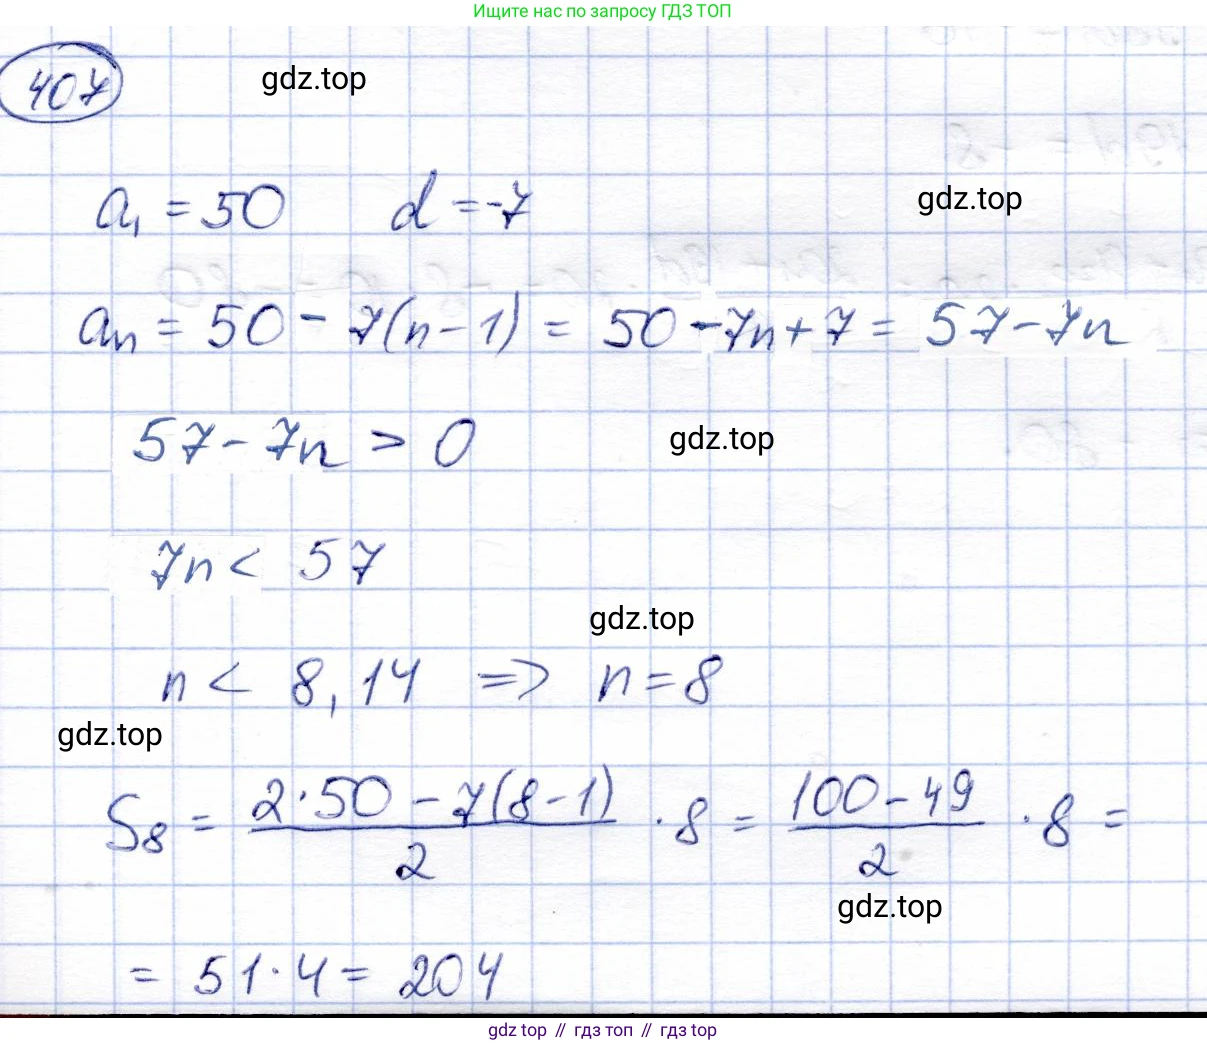 Ищите нас по запросу ГДЗ ТОП
407
gdz.top
a₁ = 50 d = -7
gdz.top
aₙ = 50 - 7(n - 1) = 50 - 7n + 7 = 57 - 7n
57 - 7n > 0
gdz.top
7n < 57
gdz.top
n < 8,14 => n = 8
gdz.top
S₈ = (2·50 - 7(8-1))/2 · 8 = (100 - 49)/2 · 8 =
gdz.top
= 51·4 = 204
gdz top // гдз топ // gdz top